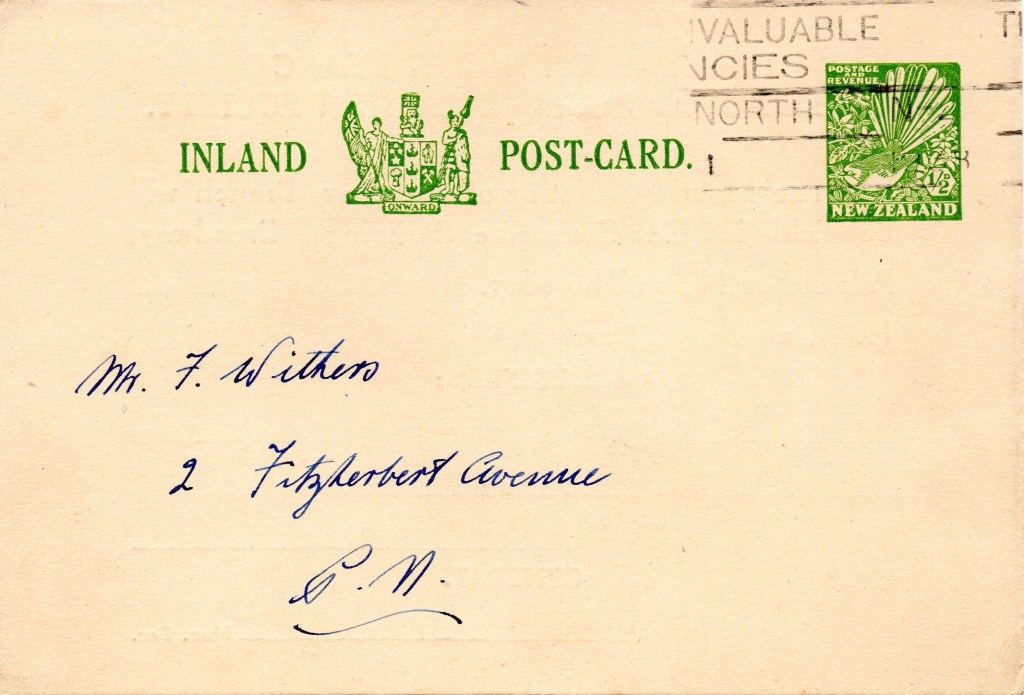 NVALUABLE TI
NCIES
NORTH N
POSTAGE
AND
REVENUE
INLAND POST-CARD.
ONWARD
1½D
NEW ZEALAND
Mr. F. Withers
2 Fitzherbert Avenue
P. N.